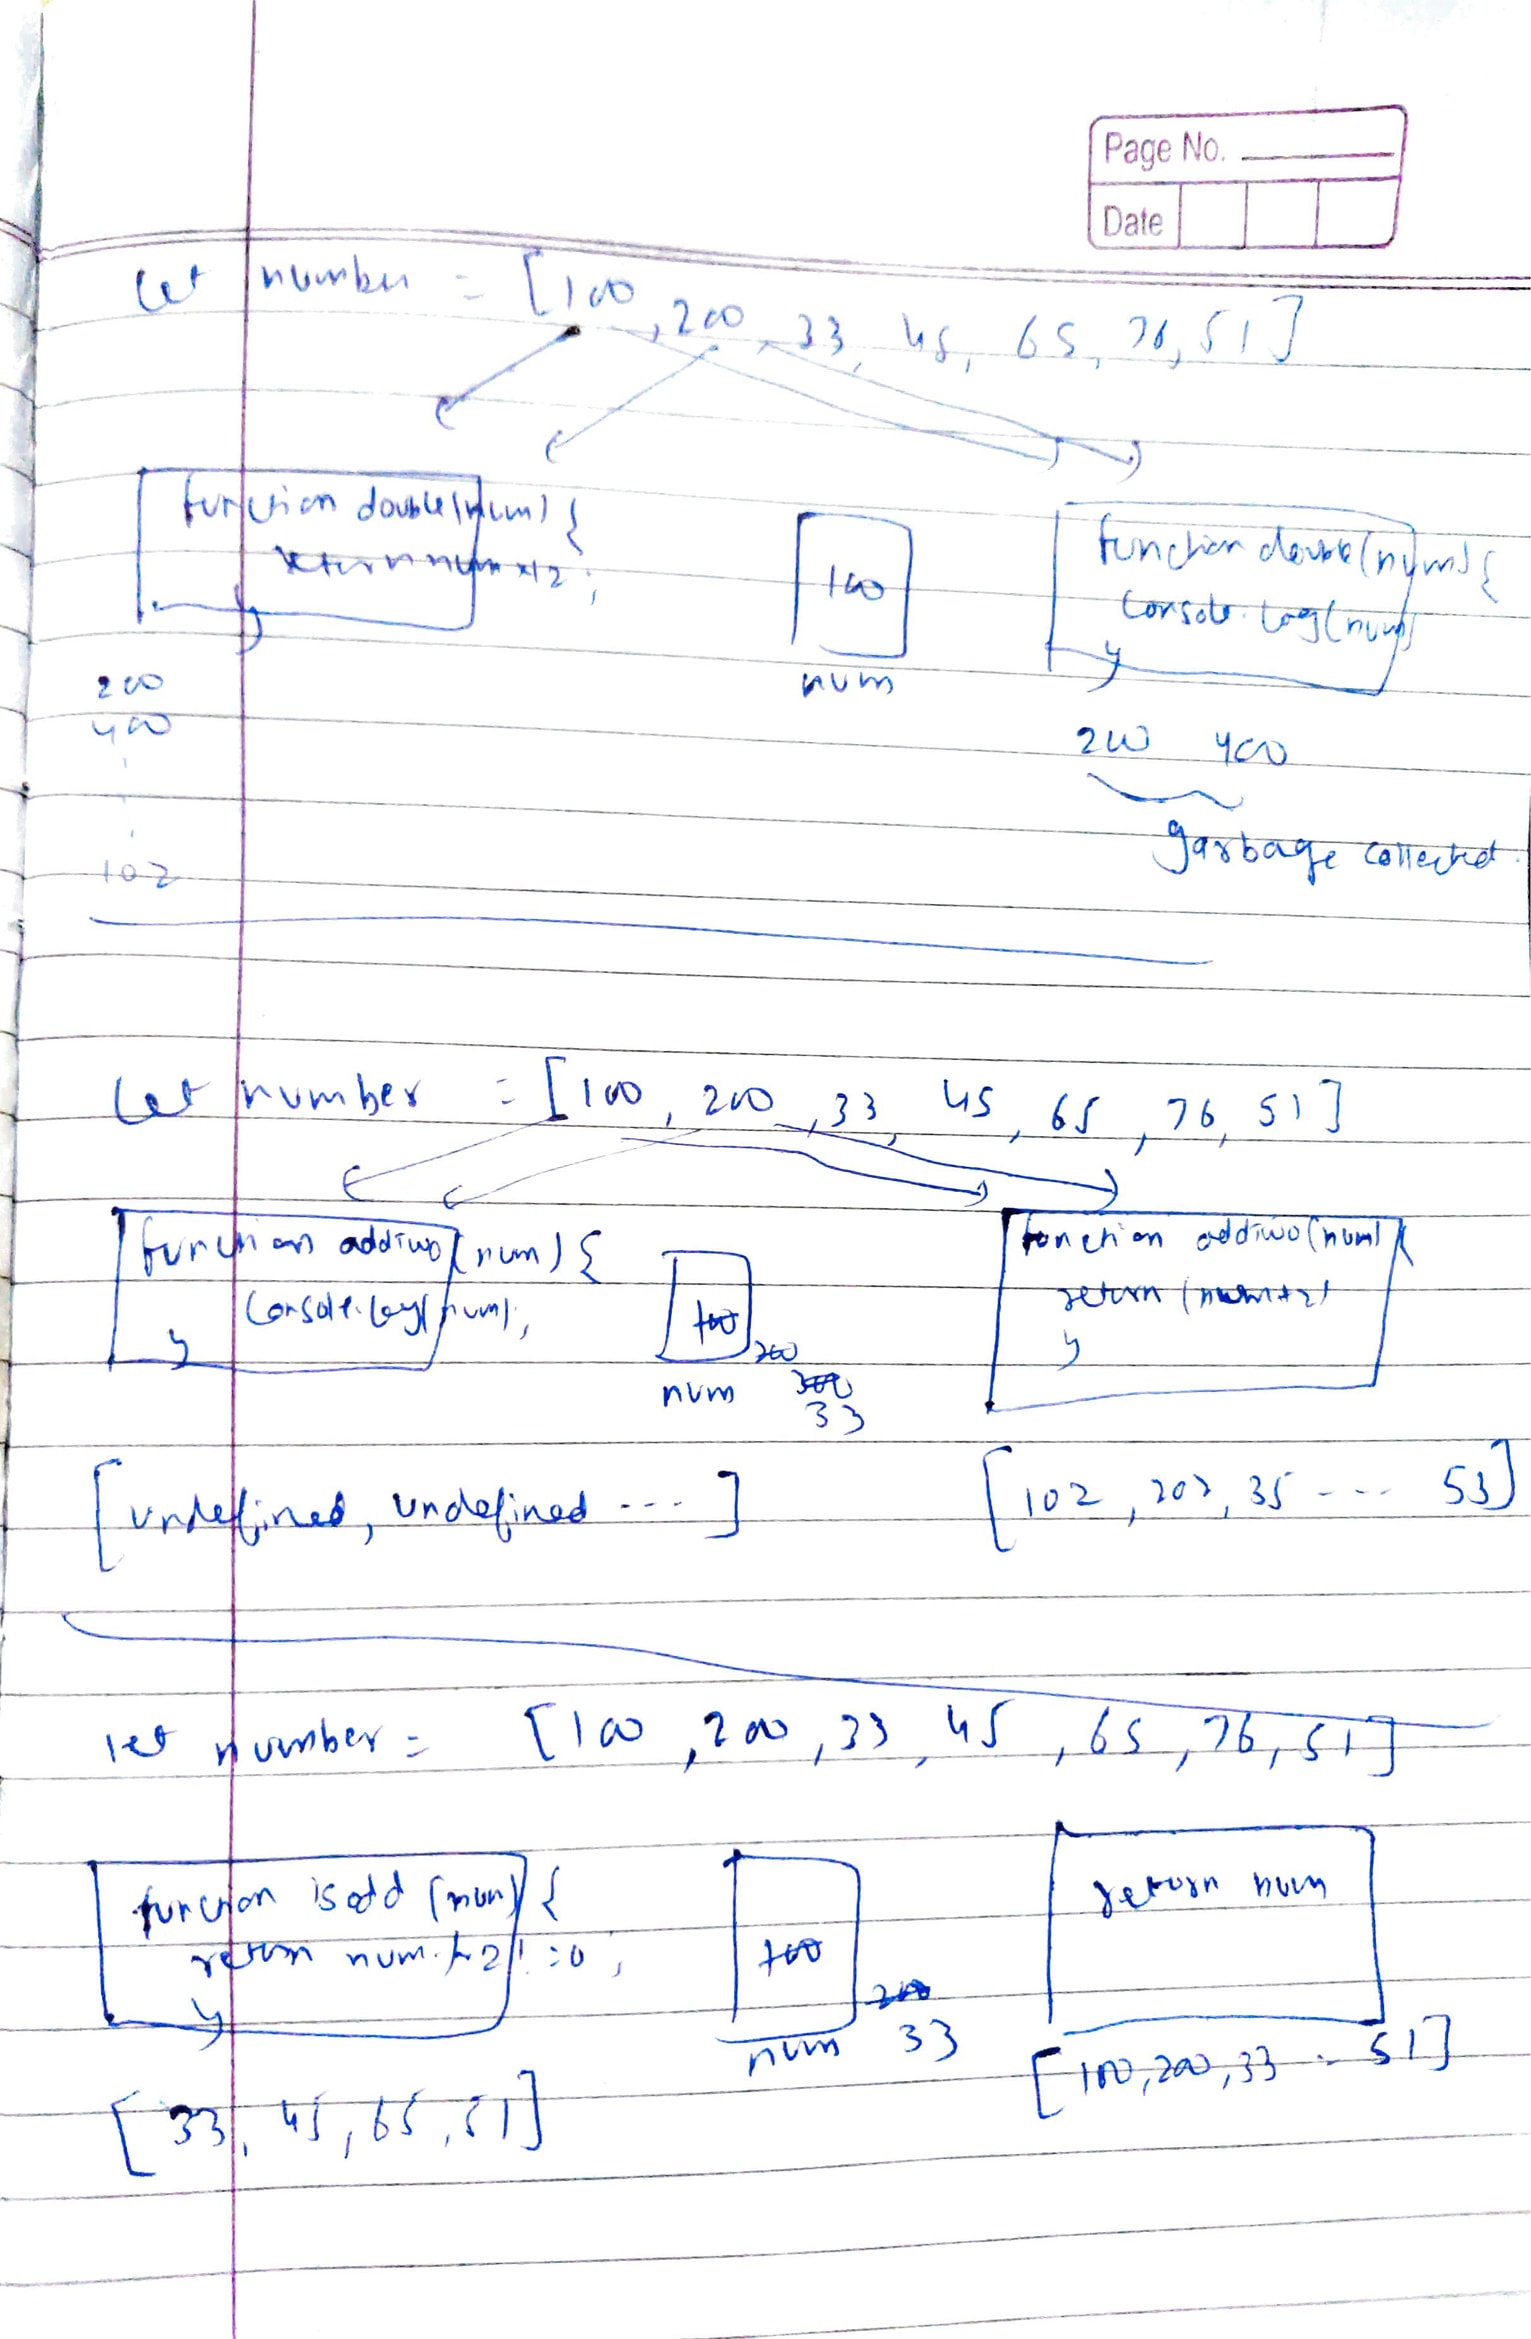 Page No.
Date
let number = [100, 200, 33, 45, 65, 76, 51]
function double(num) {
return num*2;
}
100
num
function double(num) {
console.log(num)
}
200
400
102
200 400
garbage collected.
let number = [100, 200, 33, 45, 65, 76, 51]
function addtwo(num) {
console.log(num);
}
100
200
300
33
num
function addtwo(num) {
return (num+2)
}
[undefined, undefined ---- ]
[102, 202, 35 --- 53]
let number = [100, 200, 33, 45, 65, 76, 51]
function isodd (num) {
return num % 2 != 0;
}
100
200
33
num
return num
[33, 45, 65, 51]
[100, 200, 33 .. 51]